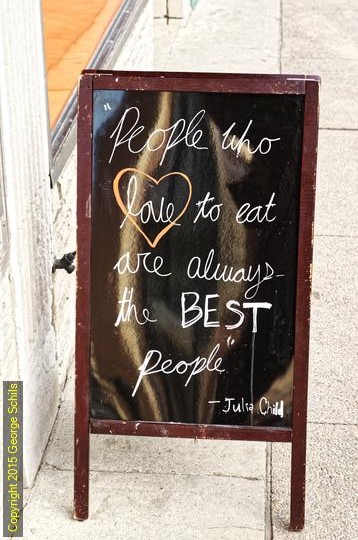 "People who
love to eat
are always
the BEST
people"
- Julia Child
Copyright 2015 George Schils